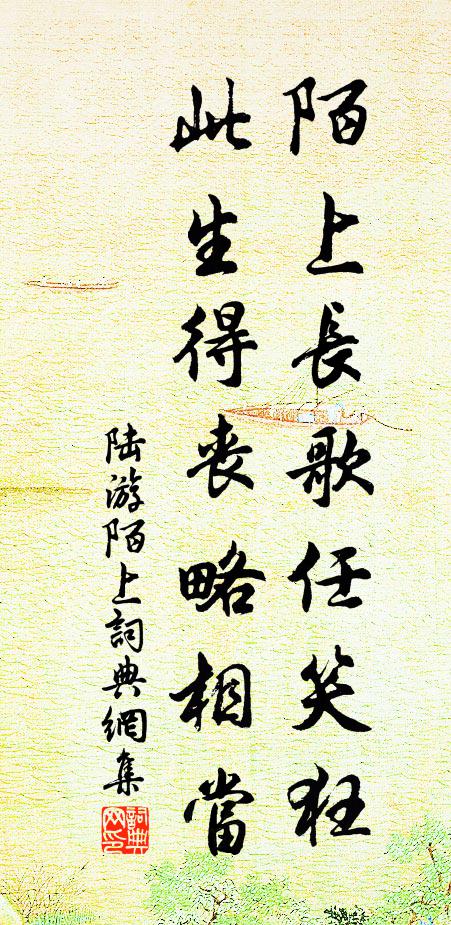 陌上長歌任笑狂
此生得丧略相當
陆游陌上詞典網集
詞典网印